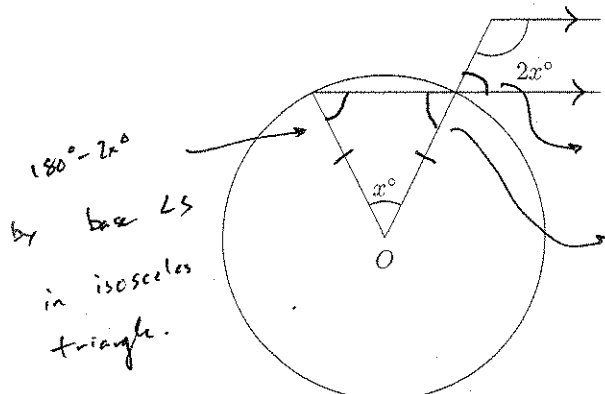 2x°
180° - 2x°
by base ∠s
in isosceles
triangle.
x°
O